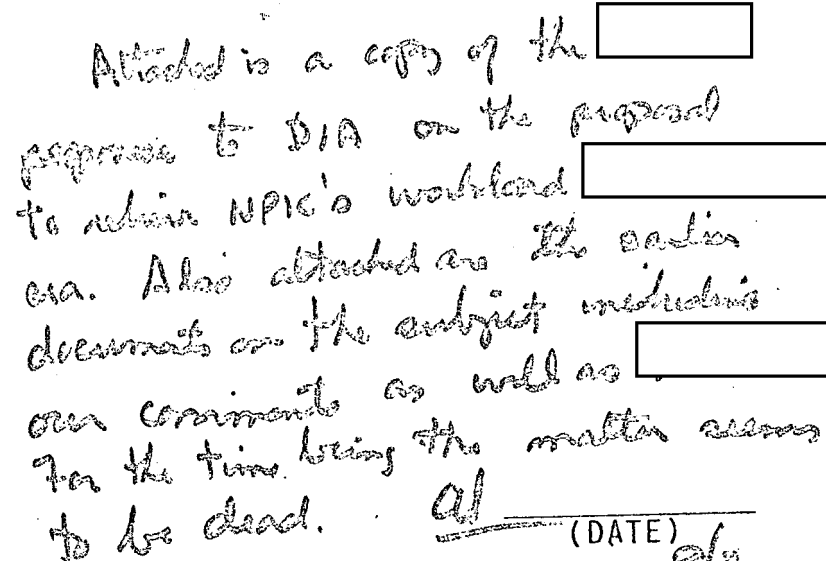 Attached is a copy of the
response to DIA on the proposal
to relieve NPIC's workload
era. Also attached are the earlier
documents on the subject including
our comments as well as
For the time being the matter seems
to be dead. al
(DATE)